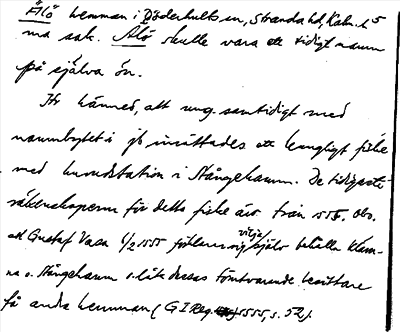 Ålö hemman i Döderhults sn, Stranda hd, Kalm. l
må sak. Alö skulle vara ett tidigt namn
på själva ön.
Jfr härmed, att ung. samtidigt med
namnbytet i jb inrättades ett kungligt fiske
med huvudstation i Stångehamn. De tidigaste
räkenskaperna för detta fiske äro från 1555. Obs.
att Gustaf Vasa 6/2 1555 förklarar sig vilja själv behålla Kläm-
na o. Stångehamn o. låta dessas förutvarande besittare
få andra hemman (G I Reg. 1555, s. 52).